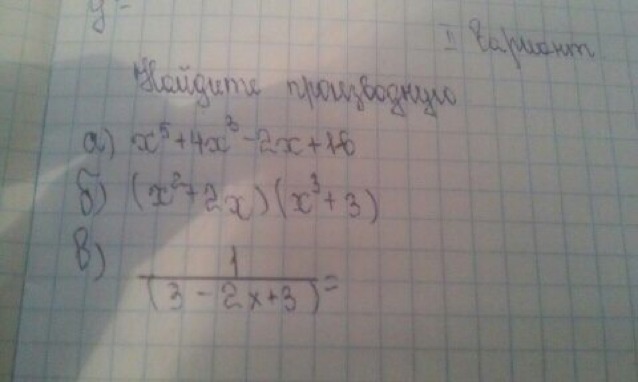 y=
II Вариант
Найдите производную
а) x⁵+4x³-2x+16
б) (x²+2x)(x³+3)
в) 1
(3-2x+3)=